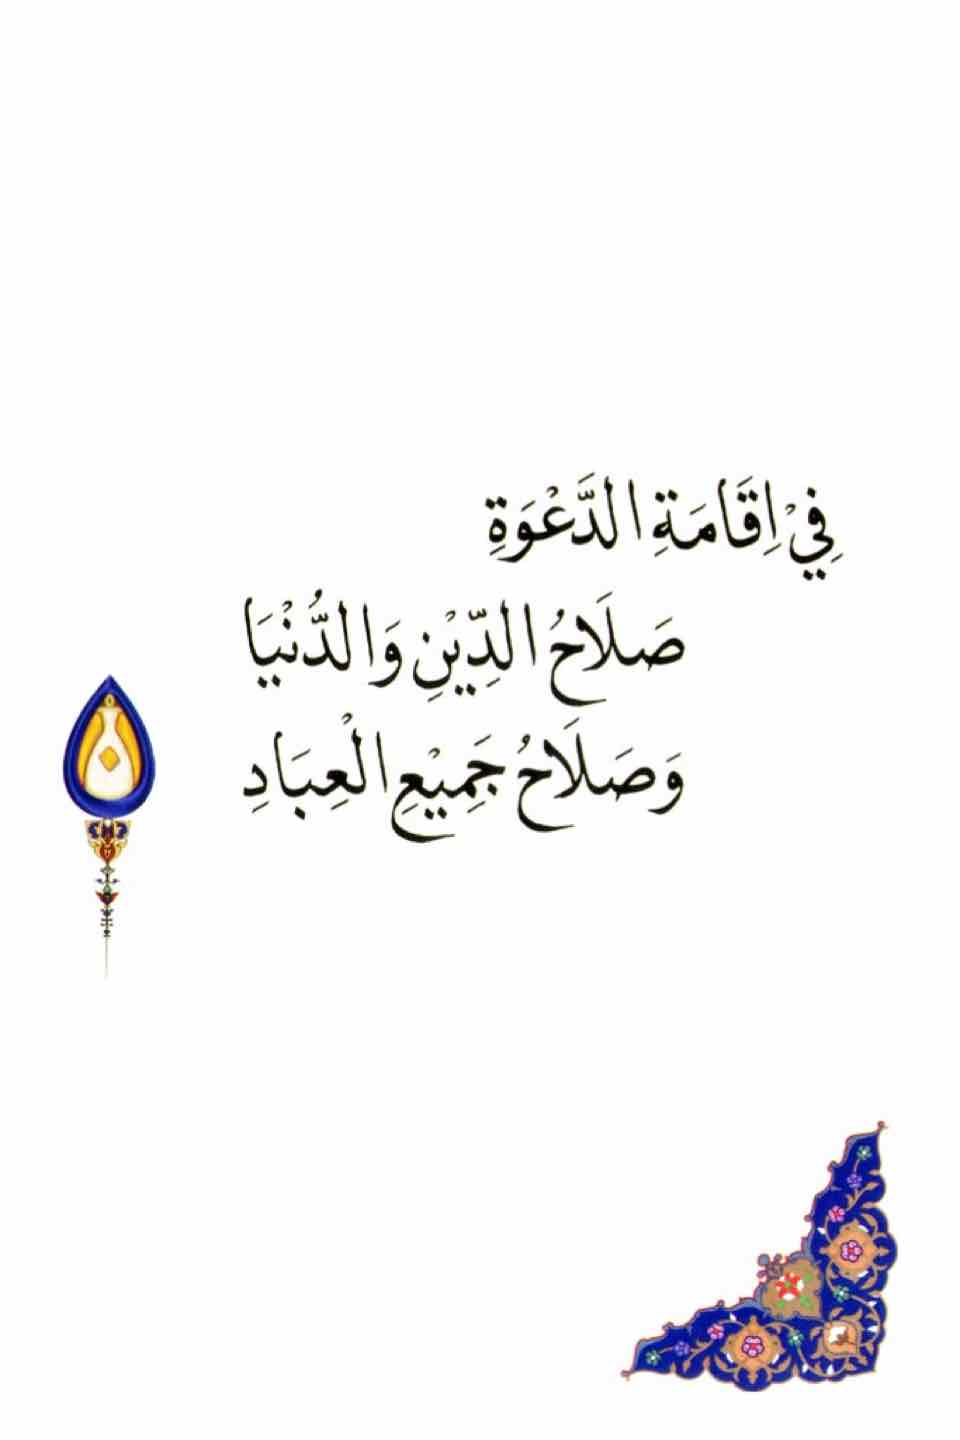 فِيْ اِقَامَةِ الدَّعْوَةِ
صَلَاحُ الدِّيْنِ وَالدُّنْيَا
وَصَلَاحُ جَمِيْعِ الْعِبَادِ